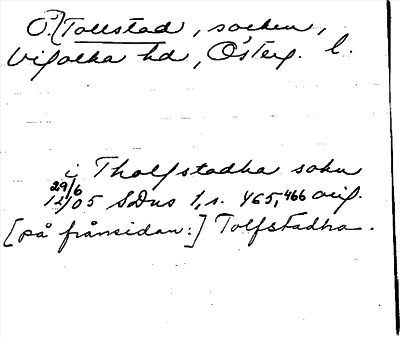 Ö. Tollstad, socken,
Vifolka hd, Österg. l.
i Tholfstadha sokn
29/6
1205 SDns 1, s. 465, 466 orig.
[på frånsidan:] Tolfstadha.